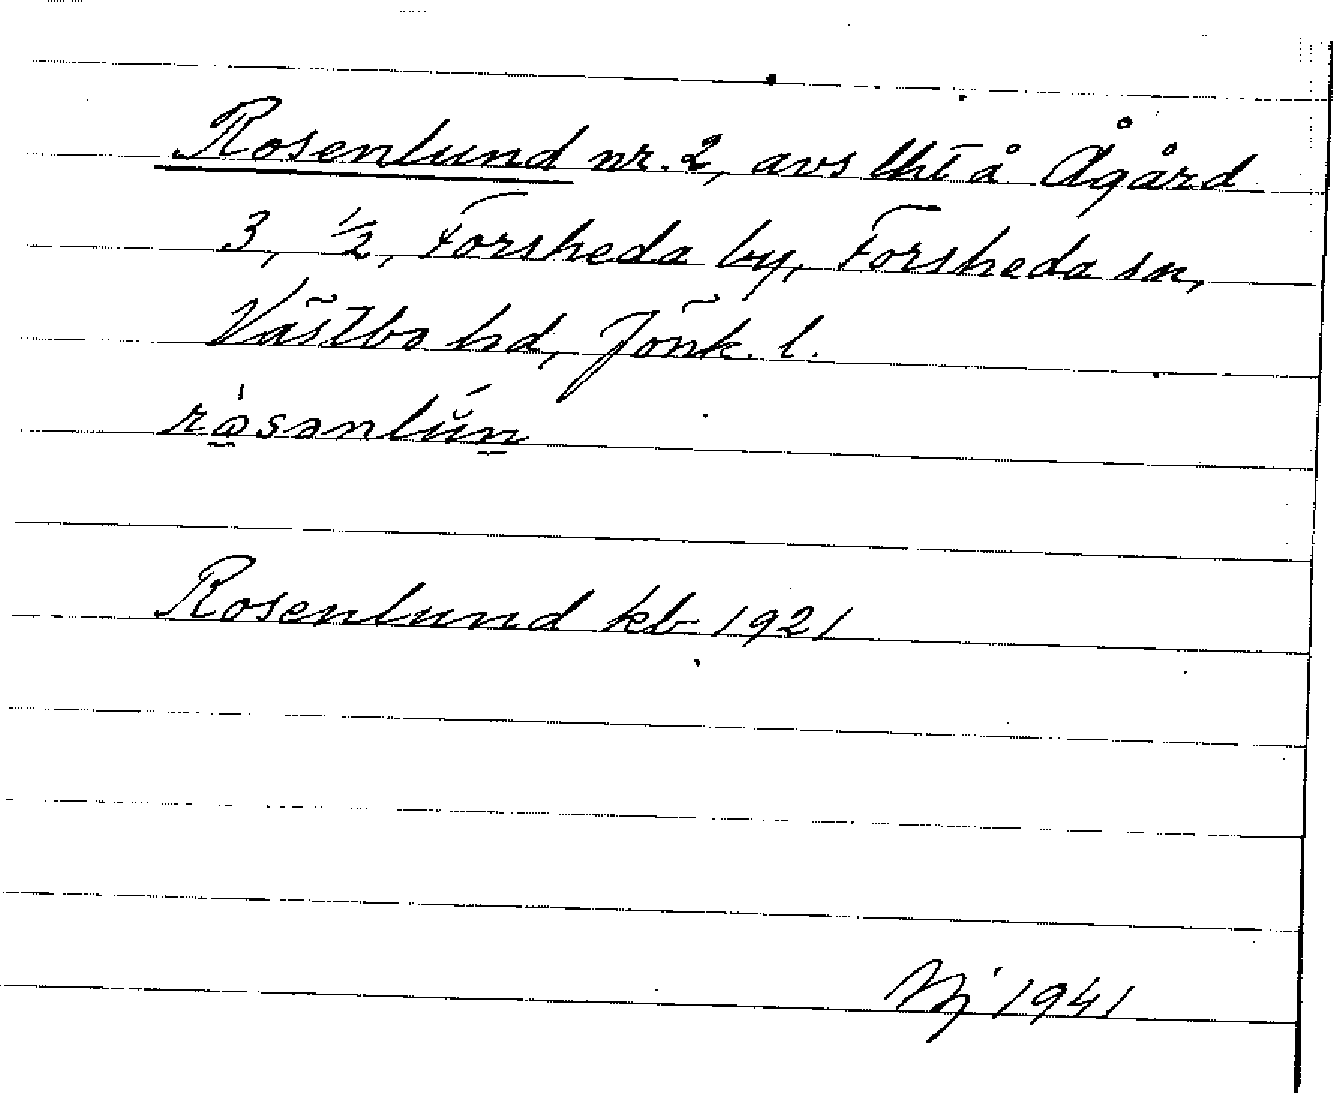 Rosenlund nr. 2, avs lht å Ågård
3, 1/2, Forsheda by, Forsheda sn,
Västbo hd, Jönk. l.
Rosenlund kb 1921
1941